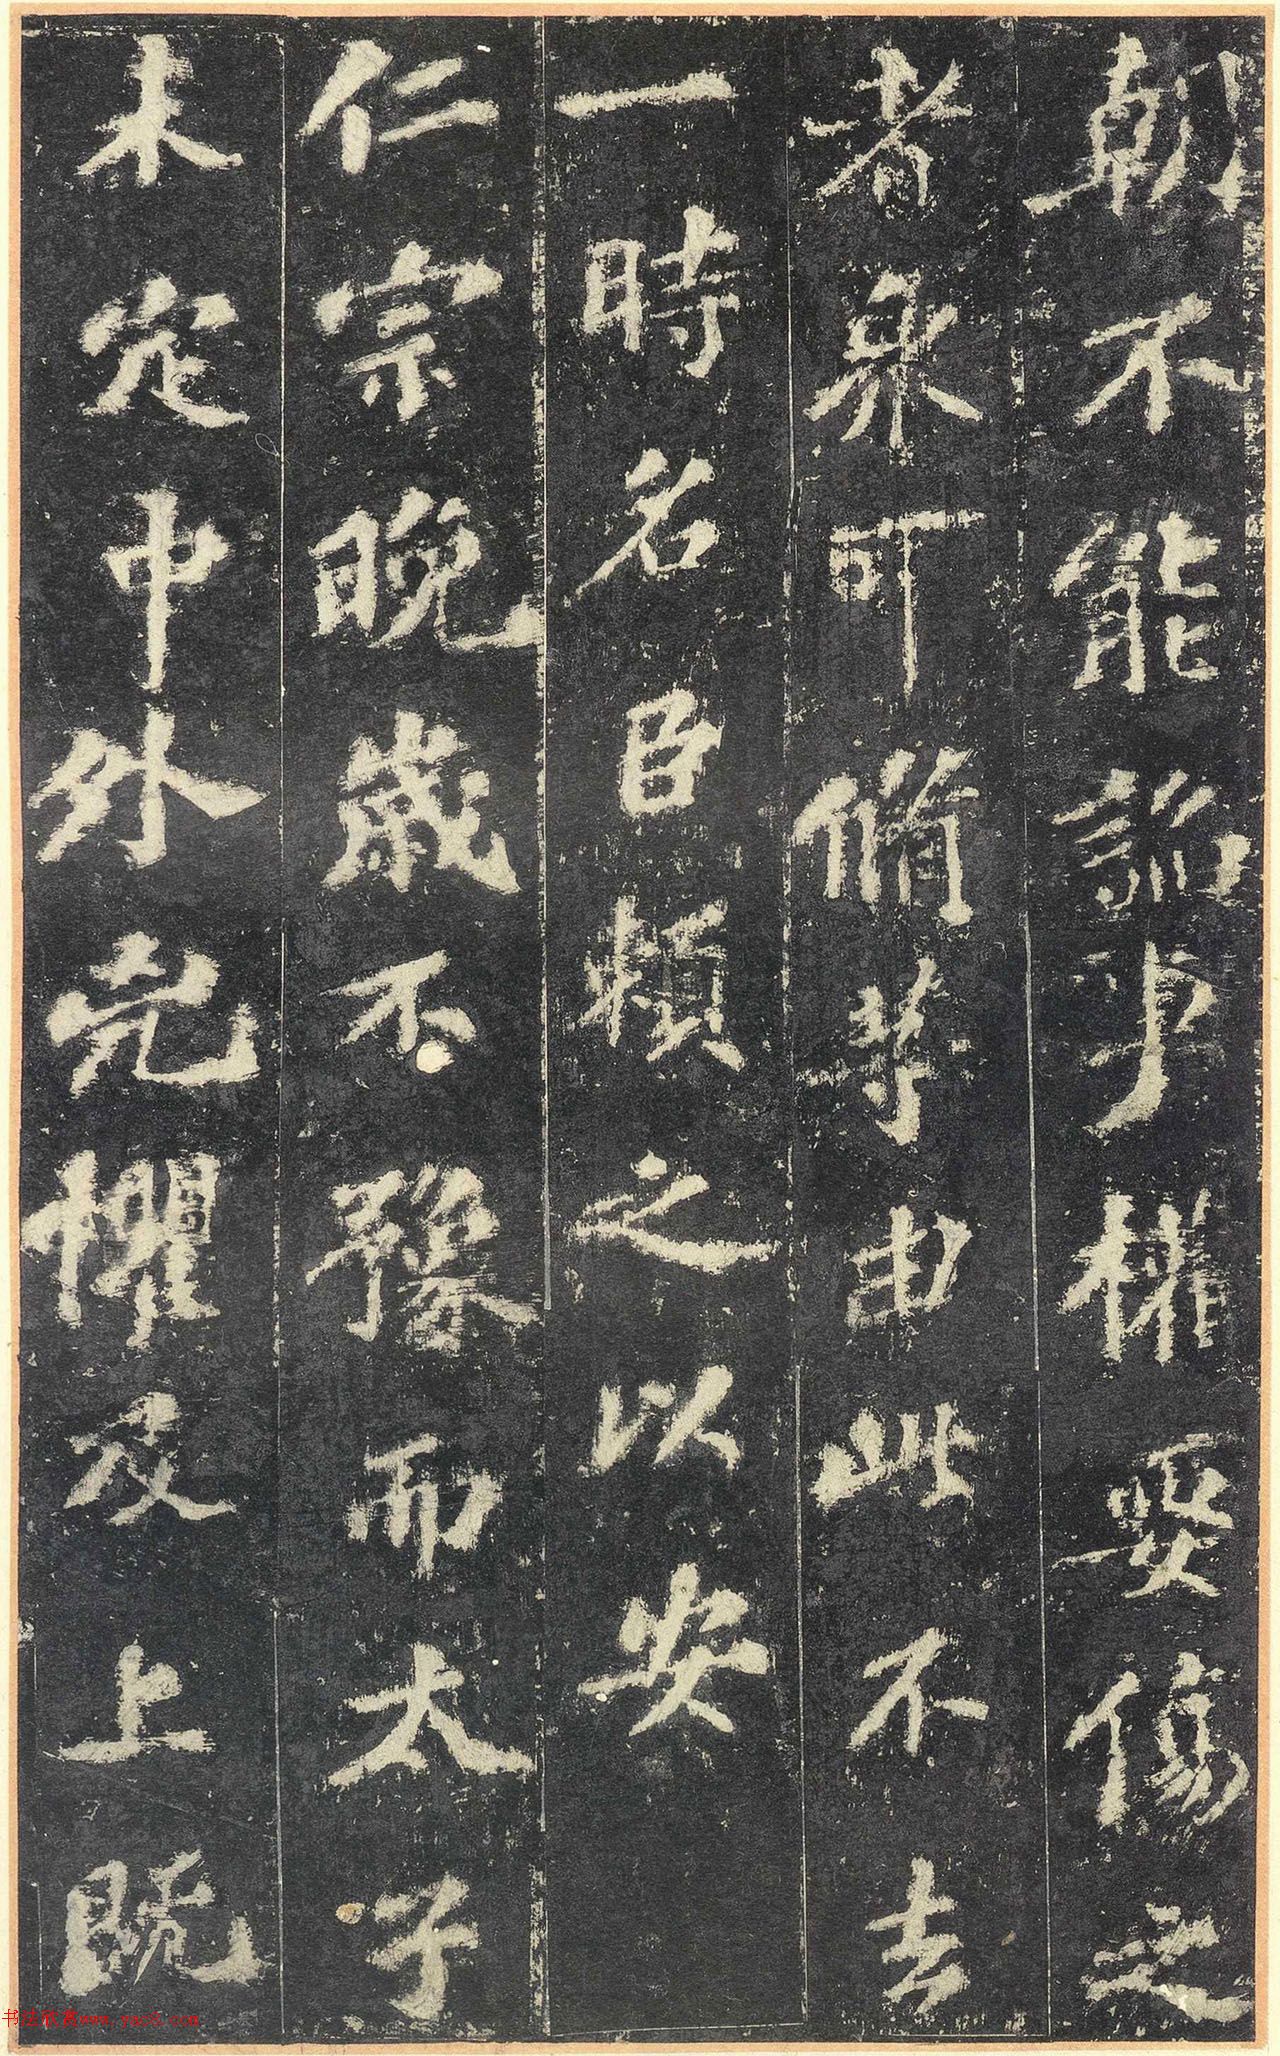 朝不能諂事權要傷之
者衆可脩等由此不去
一時名臣賴之以安
仁宗晚歲不豫而太子
未定中外兇懼及上既
书法欣赏www.yac8.com